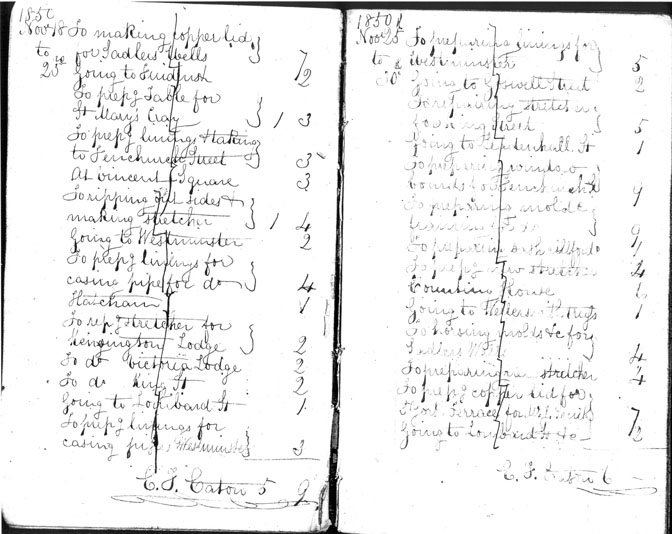 1850
Novr 18 To making copper lid
to for Sadlers Wells 7
25 Going to 2
To prepg Table for
St Mary's Cray 1 3
To prepg linings & taking
to Fenchurch Street 3
At vincent Square 3
To ripping out sides &
making stretcher 1 4
Going to Westminster 2
To prepg linings for
casing pipe for do 4
Hatcham 1
To repg stretcher for
Kensington Lodge 2
To do victoria Lodge 2
To do King St 2
Going to Lombard St 1
To prepg linings for
casing pipes Westminster 3
C. F. Eaton 5 9
1850
Novr 25 To preparing linings for
to westminster 5
30 Going to Goswell Street 2
To repairing stretcher
for King Street 5
Going to Leadenhall St 1
To preparing window
to Fenchurch 9
To preparing molds &
9
To preparing 1
To prepg new stretcher 2
Counting House
Going to 1
To housing molds &c for
Sadlers Wells 4
To preparing new stretcher 4
To prepg copper lid for
Terrace for 7
Going to Lombard St &c 2
C. F. Eaton 6 –